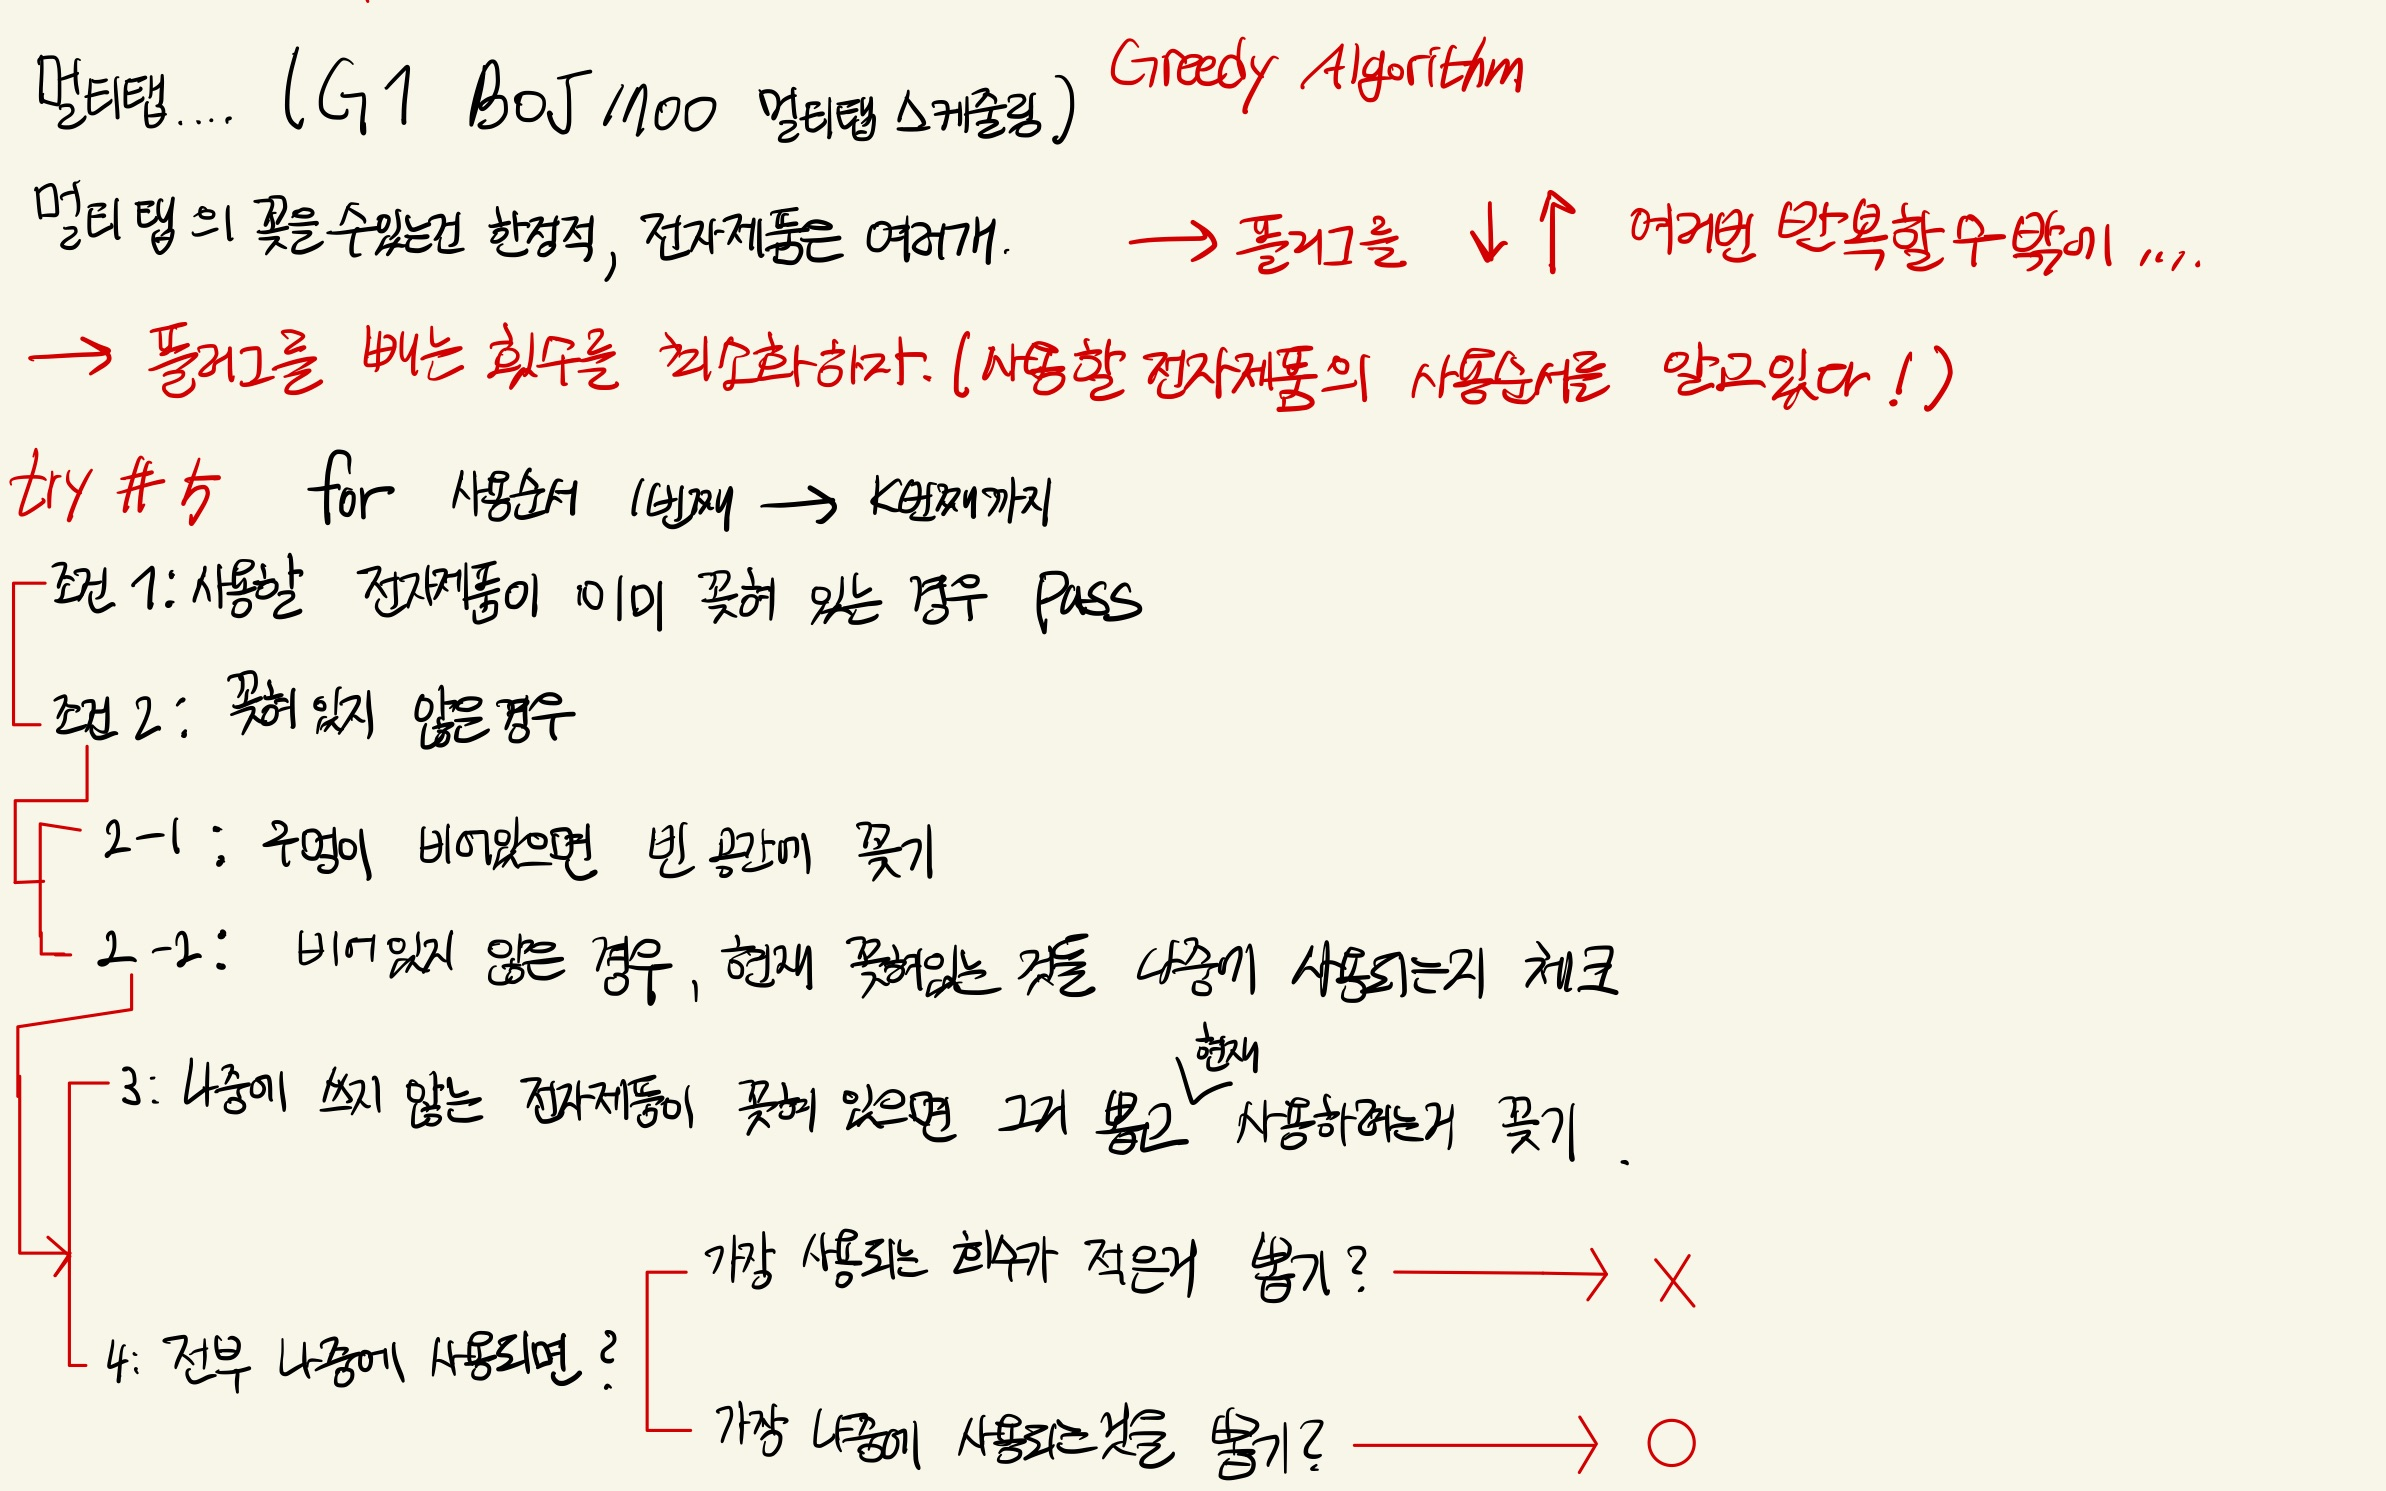 멀티탭.... (G1 BOJ 1700 멀티탭 스케줄링) Greedy Algorithm
멀티탭의 꽂을 수 있는건 한정적, 전자제품은 여러개. → 플러그를 ↓↑ 여러번 반복할 수 밖에 ....
→ 플러그를 빼는 횟수를 최소화하자. (사용할 전자제품의 사용순서를 알고있다!)
try #5 for 사용순서 1번째 → K번째까지
조건 1: 사용할 전자제품이 이미 꽂혀 있는 경우 Pass
조건 2: 꽂혀 있지 않은 경우
2-1 : 구멍이 비어있으면 빈 공간에 꽂기
2-2: 비어있지 않은 경우, 현재 꽂혀있는 것들 나중에 사용되는지 체크
현재
3: 나중에 쓰지 않는 전자제품이 꽂혀 있으면 그거 뽑고 사용하려는거 꽂기.
가장 사용되는 회수가 적은거 뽑기? → X
4: 전부 나중에 사용되면?
가장 나중에 사용되는것을 뽑기? → O